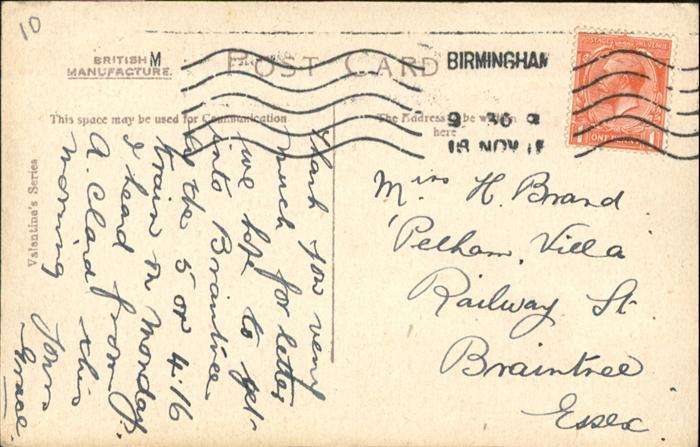 10
BRITISH M
MANUFACTURE.
POST CARD
BIRMINGHAM
9 30
18 NOV 1
POSTAGE REVENUE
1 ONE PENNY 1
This space may be used for Communication
The Address to be written
here
Valentine's Series
Thank you very
much for letter
we hope to get
into Braintree
by the 5 or 4.16
train on Monday.
I head from
A. Clara this
morning
Yours
Grace.
Miss H. Brand
'Pelham, Villa'
Railway St
Braintree
Essex.